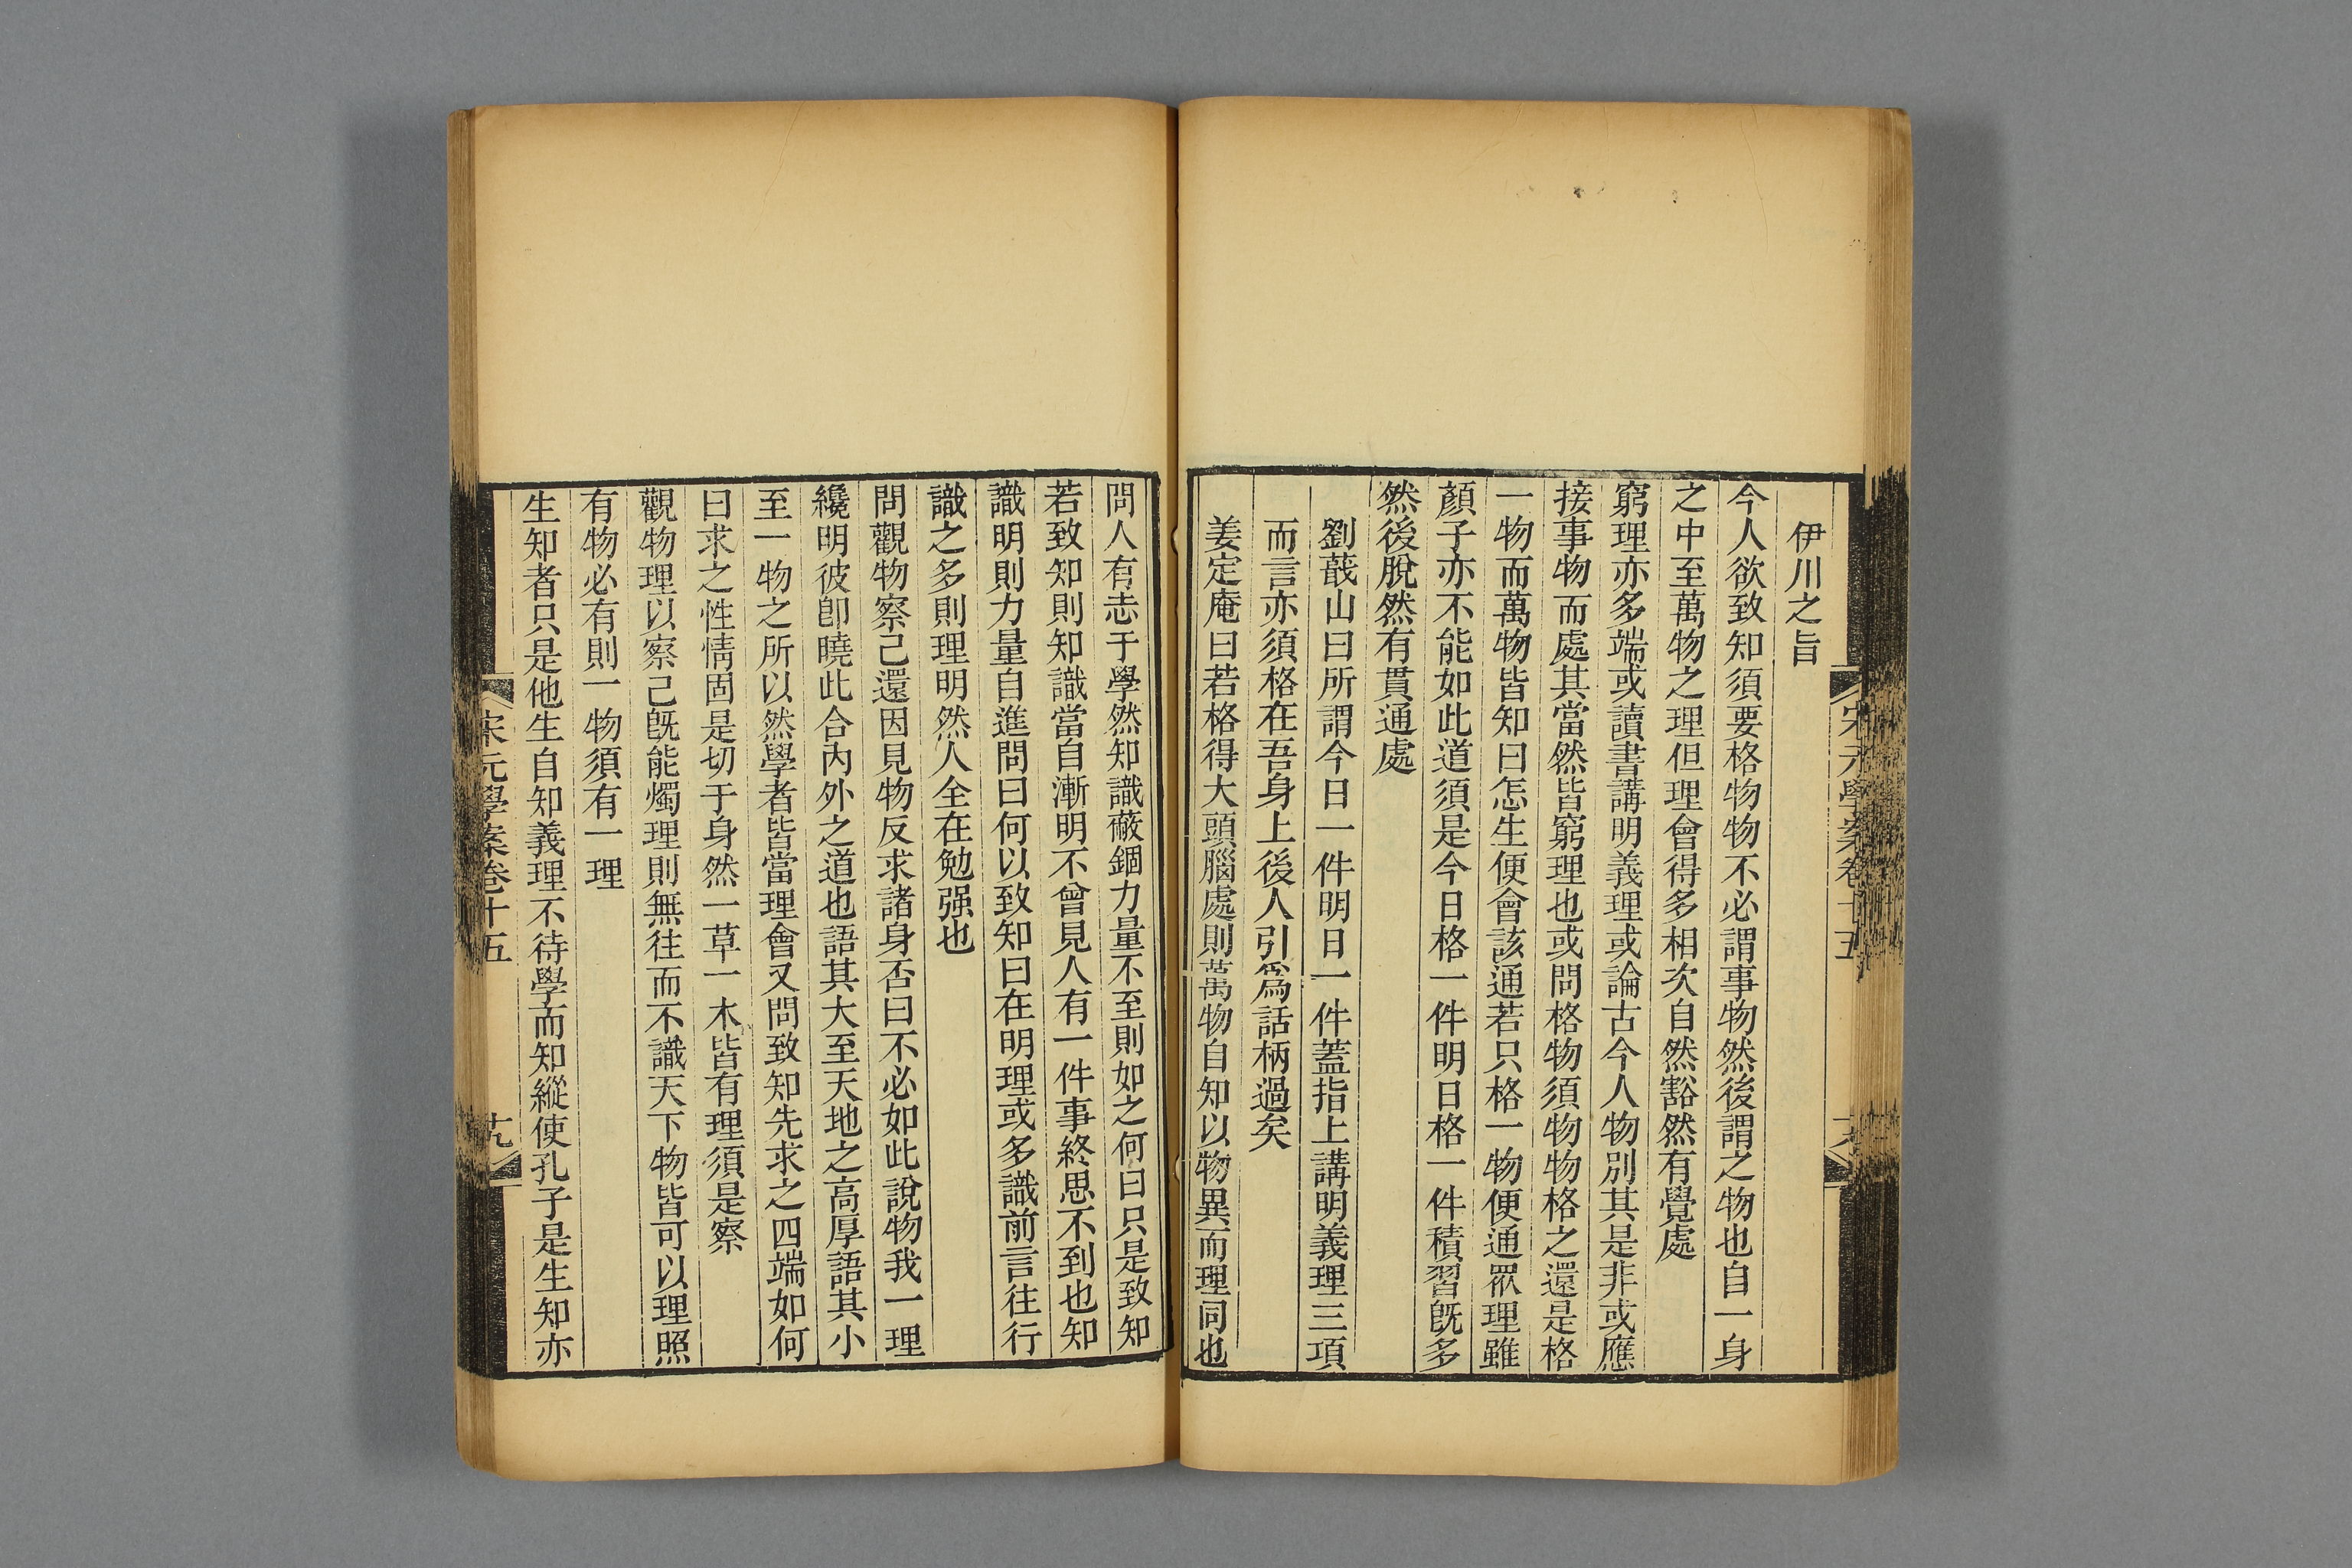 伊川之旨
今人欲致知須要格物物不必謂事物然後謂之物也自一身
之中至萬物之理但理會得多相次自然豁然有覺處
窮理亦多端或讀書講明義理或論古今人物別其是非或應
接事物而處其當然皆窮理也或問格物須物物格之還是格
一物而萬物皆知曰怎生便會該通若只格一物便通眾理雖
顏子亦不能如此道須是今日格一件明日格一件積習旣多
然後脫然有貫通處
劉蕺山曰所謂今日一件明日一件蓋指上講明義理三項
而言亦須格在吾身上後人引爲話柄過矣
姜定庵曰若格得大頭腦處則萬物自知以物異而理同也
宋元學案卷十五
問人有志于學然知識蔽錮力量不至則如之何曰只是致知
若致知則知識當自漸明不曾見人有一件事終思不到也知
識明則力量自進問曰何以致知曰在明理或多識前言往行
識之多則理明然人全在勉强也
問觀物察己還因見物反求諸身否曰不必如此說物我一理
纔明彼卽曉此合內外之道也語其大至天地之高厚語其小
至一物之所以然學者皆當理會又問致知先求之四端如何
曰求之性情固是切于身然一草一木皆有理須是察
觀物理以察己旣能燭理則無往而不識天下物皆可以理照
有物必有則一物須有一理
生知者只是他生自知義理不待學而知縱使孔子是生知亦
宋元學案卷十五